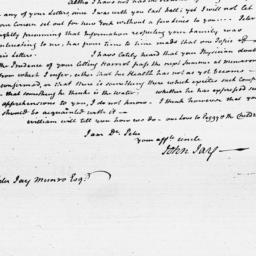 of any of your Letters since I was with you last Fall, yet I will not let
your Cousin set out for New York without a few lines to you
presuming that Information respecting your family would
be interesting to me, has from time to time made that one Topic of
his Letters.
I have lately heard that your Physician doubts
the Prudence of your letting Harriot pass the next Summer at Mamaro
from which I infer, either that her Health has not as yet become
confirmed, or that there is something there which excites such
that something he thinks is the Water. whether he has expressed such
apprehensions to you, I do not know. I think however that you
should be acquainted with it
William will tell you how we do. our love to Peggy & the Children
I am Dr. Peter
your affte. uncle
John Jay
Peter Jay Munro Esqr.